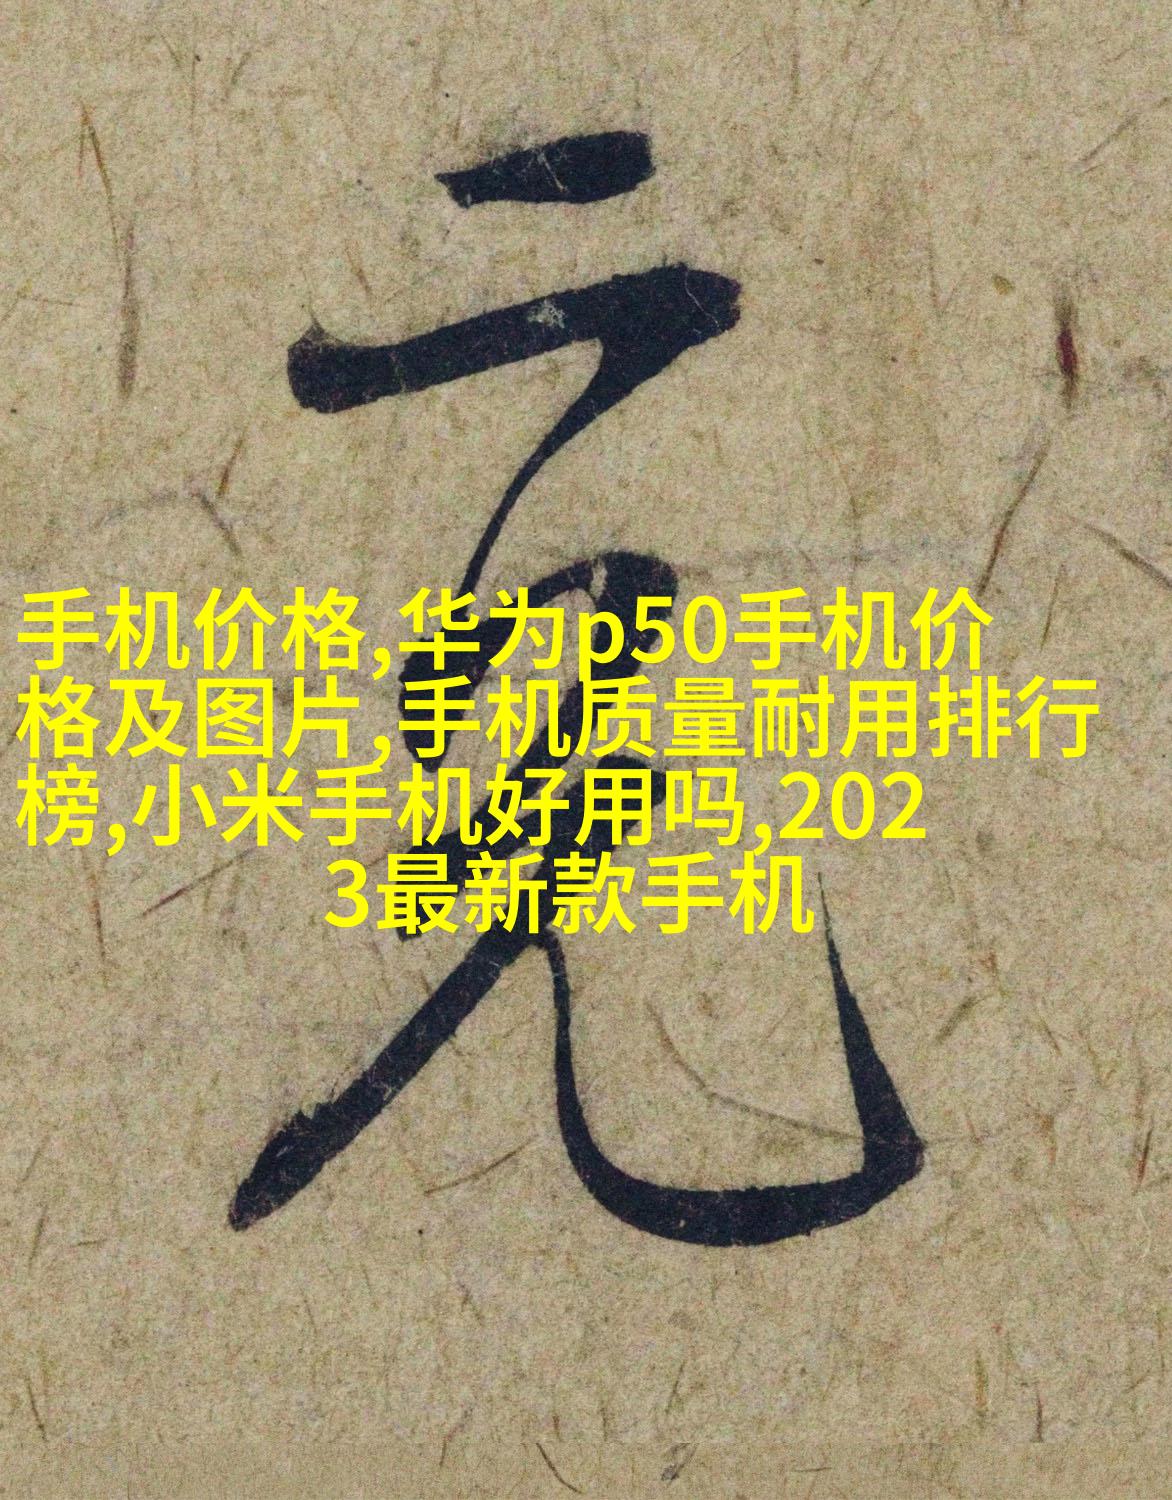 充
手机价格,华为p50手机价
格及图片,手机质量耐用排行
榜,小米手机好用吗,202
3最新款手机